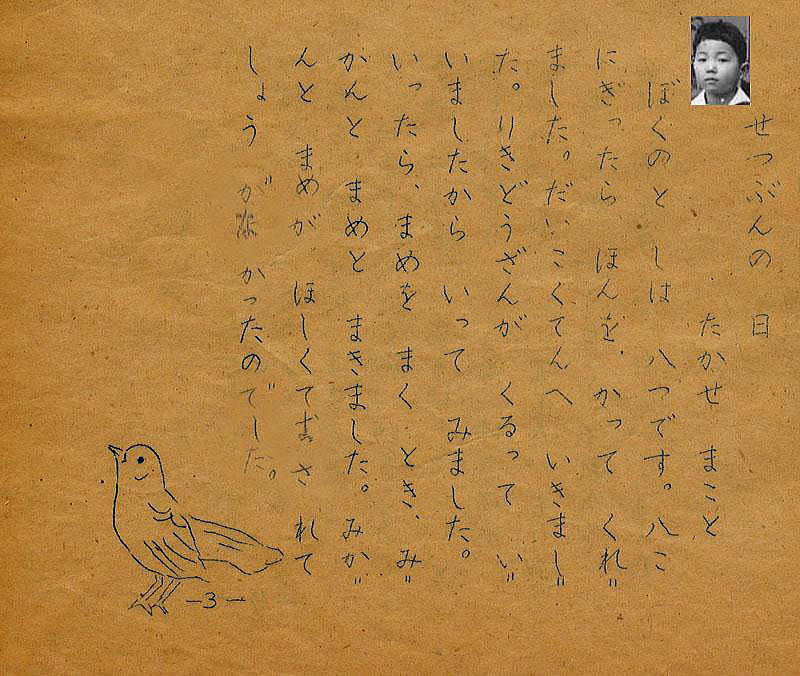 せつぶんの 日
たかせ まこと
ぼくのと しは 八つです。八こ
にぎったら ほんを、かって くれ〃
ました。だいこくてんへ いきまし〃
た。りきどうざんが くるって い〃
いましたから いって みました。
いったら、まめを まく とき、み〃
かんと まめと まきました。みか〃
んと まめが ほしくて されて
しょう がな かったのでした。
—3—